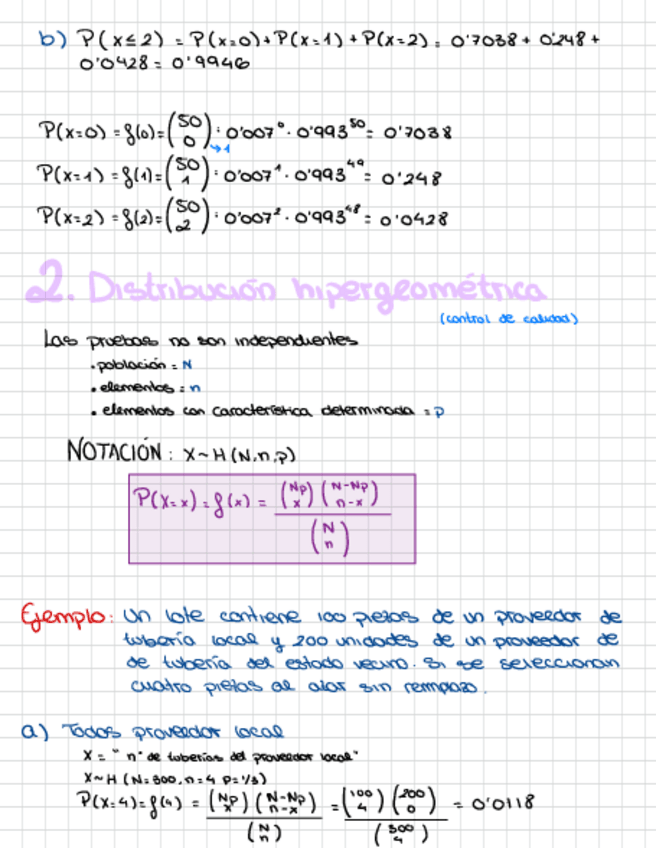 b) P(x≤2) = P(x=0)+P(x=1)+P(x=2)= 0'7038+0'248+
0'0428=0'9946
P(x=0)=f(0)=(50 0)·0'007⁰·0'993⁵⁰=0'7038
→1
P(x=1)=f(1)=(50 1)·0'007¹·0'993⁴⁹=0'248
P(x=2)=f(2)=(50 2)·0'007²·0'993⁴⁸=0'0428
2. Distribución hipergeométrica
(control de calidad)
Las pruebas no son independientes
·población = N
·elementos = n
·elementos con característica determinada = p
NOTACIÓN: X~H(N,n,p)
P(X=x)=f(x)= (Np x)(N-Np n-x) / (N n)
Ejemplo: Un lote contiene 100 piezas de un proveedor de
tubería local y 200 unidades de un proveedor de
de tubería del estado vecino. Si se seleccionan
cuatro piezas al azar sin reemplazo.
a) Todos proveedor local
X = "nº de tuberías del proveedor local"
X~H(N=300, n=4 p=1/3)
P(X=4)=f(4) = (Np x)(N-Np n-x) / (N n) = (100 4)(200 0) / (300 4) = 0'0118